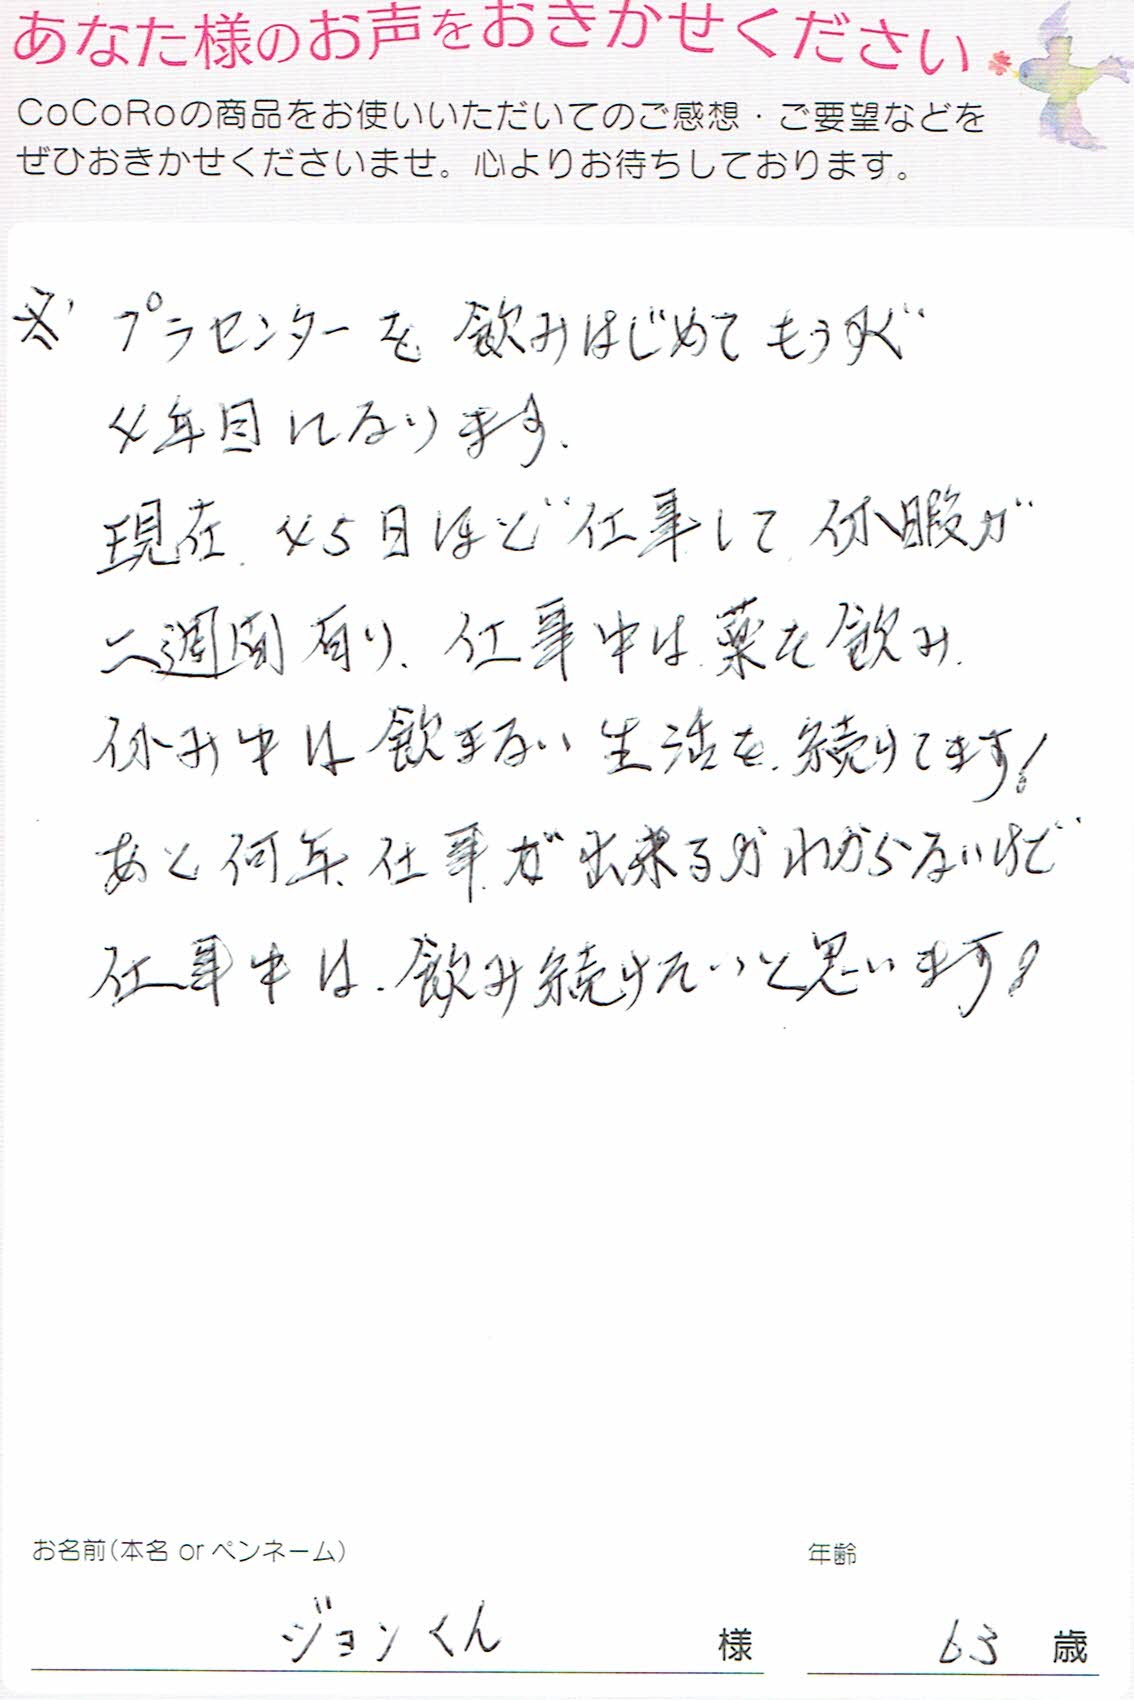 あなた様のお声をおきかせください
CoCoRoの商品をお使いいただいてのご感想・ご要望などを
ぜひおきかせくださいませ。心よりお待ちしております。
プラセンターを飲みはじめてもうすぐ
4年目になります.
現在、45日ほど仕事して、休暇が
二週間有り、仕事中は、薬を飲み、
休み中は飲まない生活を、続けてます!
あと何年、仕事が出来るかわからないけど
仕事中は、飲み続けたいと思います!
お名前(本名 or ペンネーム) 年齢
ジョンくん 様 63 歳